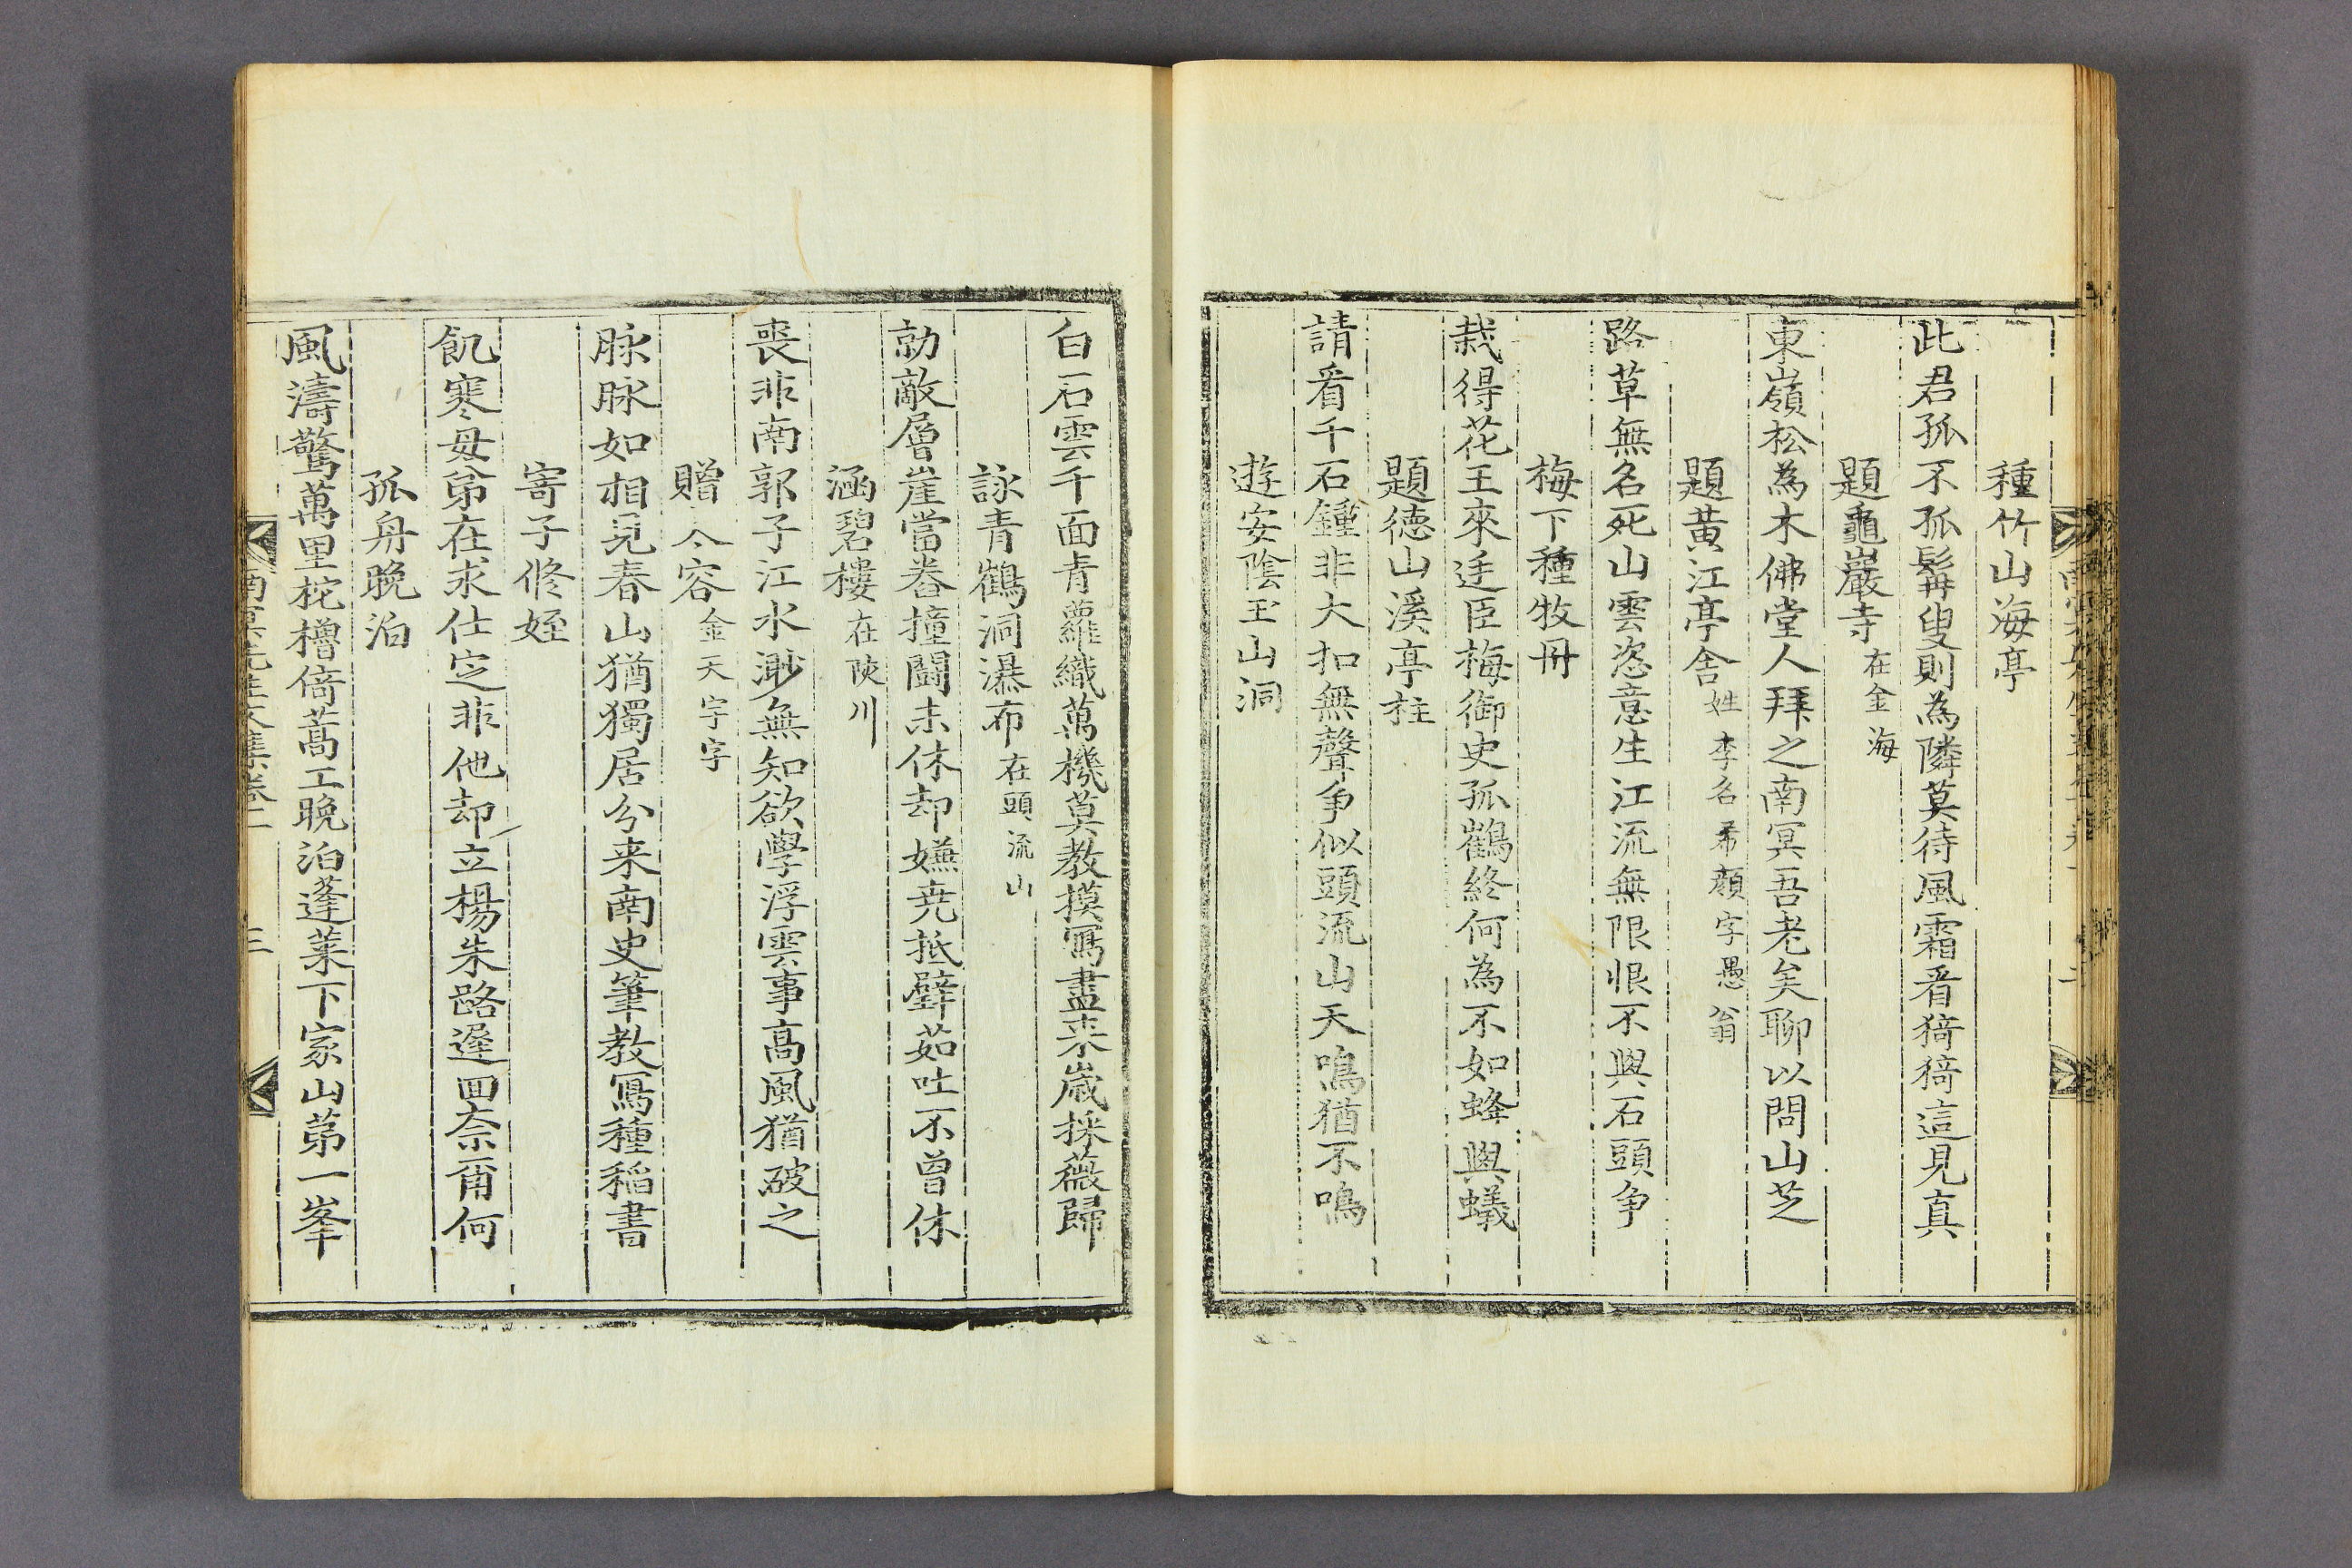 種竹山海亭
此君孤不孤髯叟則為隣莫待風霜看猗猗這見真
題龜巖寺在金海
東嶺松為木佛堂人拜之南冥吾老矣聊以問山芝
題黃江亭舍姓李名希顔字愚翁
路草無名死山雲恣意生江流無限恨不與石頭争
梅下種牧冊
栽得花王來廷臣梅御史孤鶴終何為不如蜂與蟻
題德山溪亭柱
請看千石鍾非大扣無聲争似頭流山天鳴猶不鳴
遊安陰玉山洞
白石雲千面青蘿織萬機莫教摸寫盡来歲採薇歸
詠青鶴洞瀑布在頭流山
勍敵層崖當舂撞鬪未休却嫌堯抵璧茹吐不曾休
涵碧樓在陜川
喪非南郭子江水渺無知欲學浮雲事高風猶破之
贈金容金天字字
脉脉如相見春山猶獨居分来南史筆教寫種稲書
寄子修姪
飢寒毋弟在求仕定非他却立楊朱路遲回奈甭何
孤舟晩泊
風濤驚萬里柁櫓倚蒿工晩泊蓬莱下家山苐一峯
南冥先生文集卷一 三